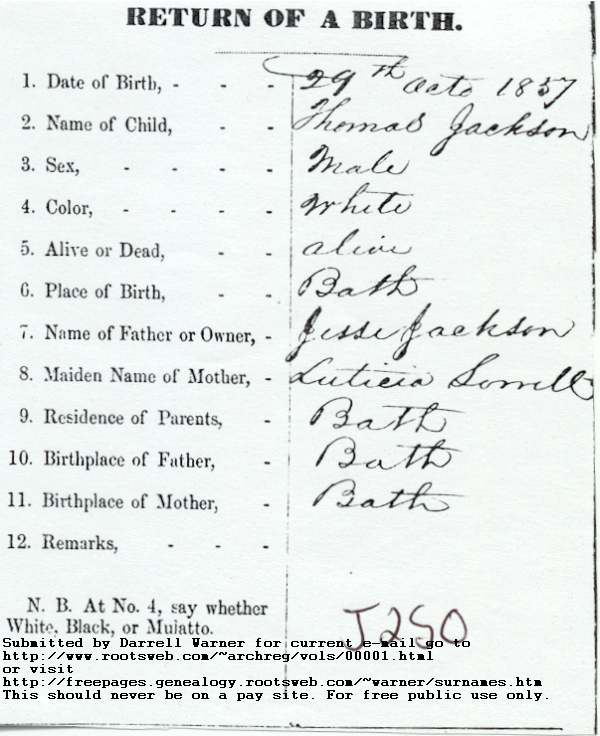 RETURN OF A BIRTH.
1. Date of Birth, - - - 29th Octo 1857
2. Name of Child, - - Thomas Jackson
3. Sex, - - - - Male
4. Color, - - - - White
5. Alive or Dead, - - alive
6. Place of Birth, - - Bath
7. Name of Father or Owner, - Jesse Jackson
8. Maiden Name of Mother, - Luticia Sorrell
9. Residence of Parents, - Bath
10. Birthplace of Father, - Bath
11. Birthplace of Mother, - Bath
12. Remarks, - - -
N. B. At No. 4, say whether
White, Black, or Mulatto.
J250
Submitted by Darrell Warner for current e-mail go to
http://www.rootsweb.com/~archreg/vols/00001.html
or visit
http://freepages.genealogy.rootsweb.com/~warner/surnames.htm
This should never be on a pay site. For free public use only.